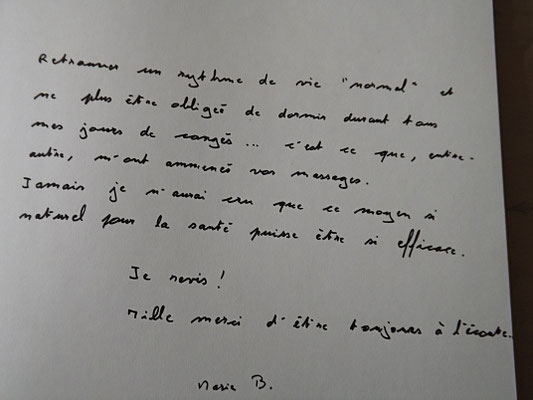 Retrouver un rythme de vie "normal" et
ne plus être obligée de dormir durant tous
mes jours de congés... c'est ce que, entre-
autre, m'ont ammenés vos massages.
Jamais je n'aurai cru que ce moyen si
naturel pour la santé puisse être si efficace.
Je revis !
Mille merci d'être toujours à l'écoute.
Marie B.